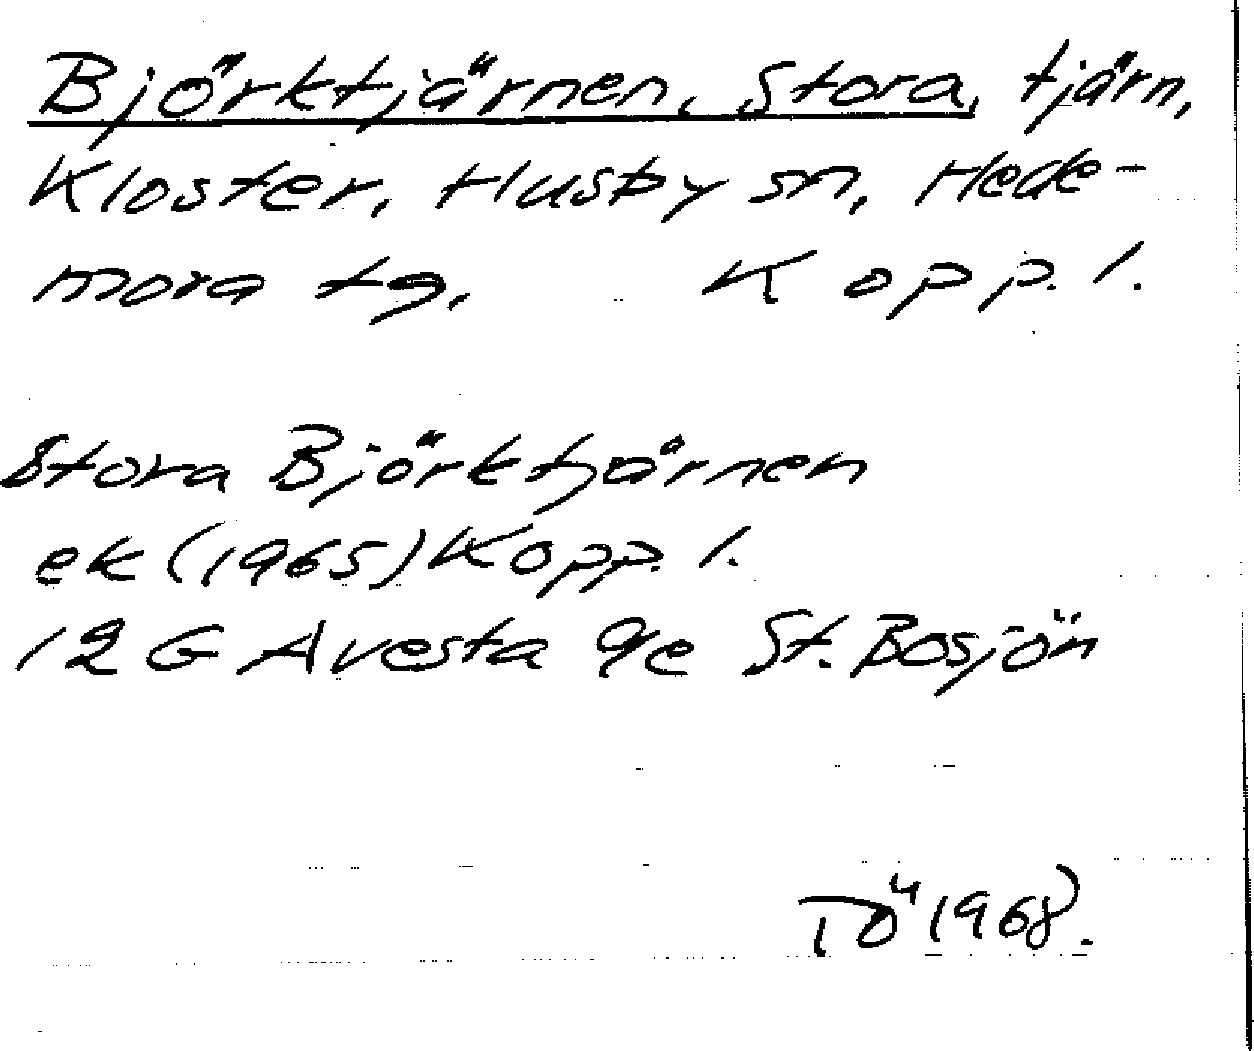 Björktjärnen, Stora, tjärn,
Kloster, Husby sn, Hede-
mora tg. Kopp. l.
Stora Björktjärnen
ek (1965) Kopp. l.
12 G Avesta 9e St. Bosjön
TÖ 1968.